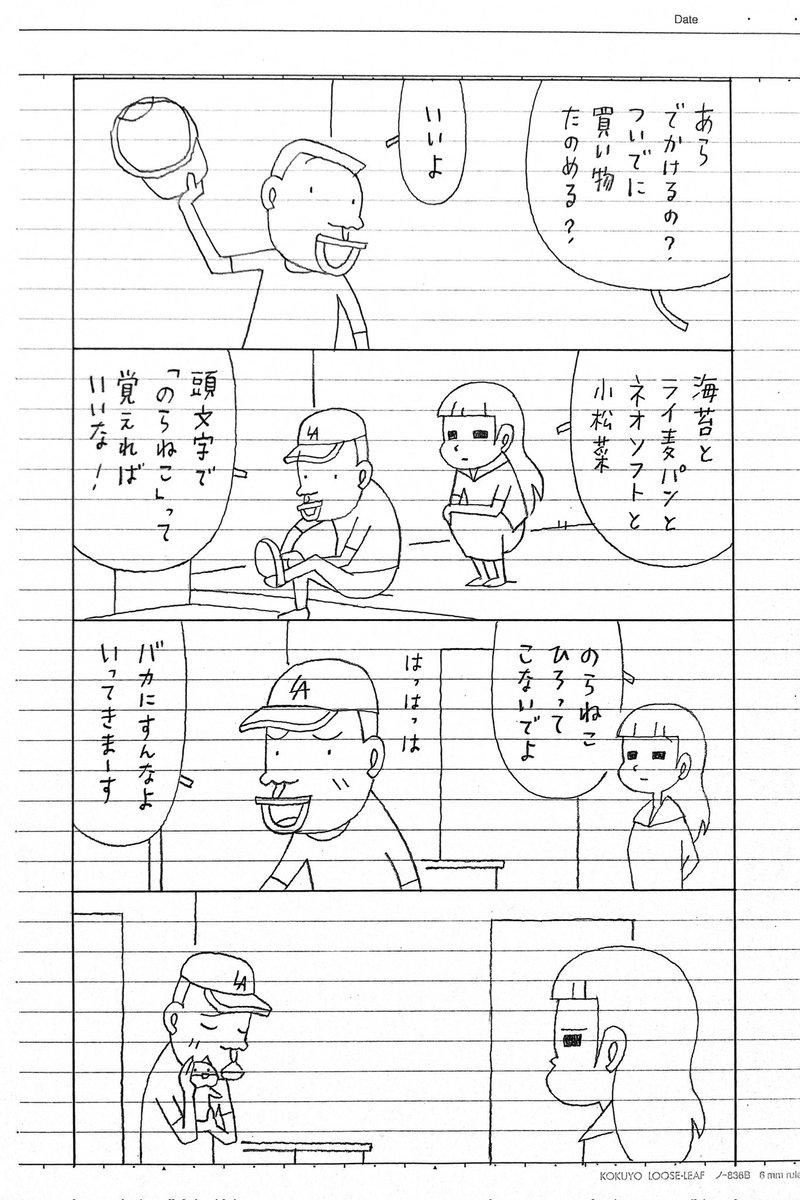 Date
あら
でかけるの？
ついでに
買い物
たのめる？
いいよ
海苔と
ライ麦パンと
ネオソフトと
小松菜
LA
頭文字で
「のらねこ」って
覚えれば
いいな！
のらねこ
ひろって
こないでよ
はっはっは
LA
バカにすんなよ
いってきまーす
LA
KOKUYO LOOSE-LEAF ノ-836B 6 mm rule